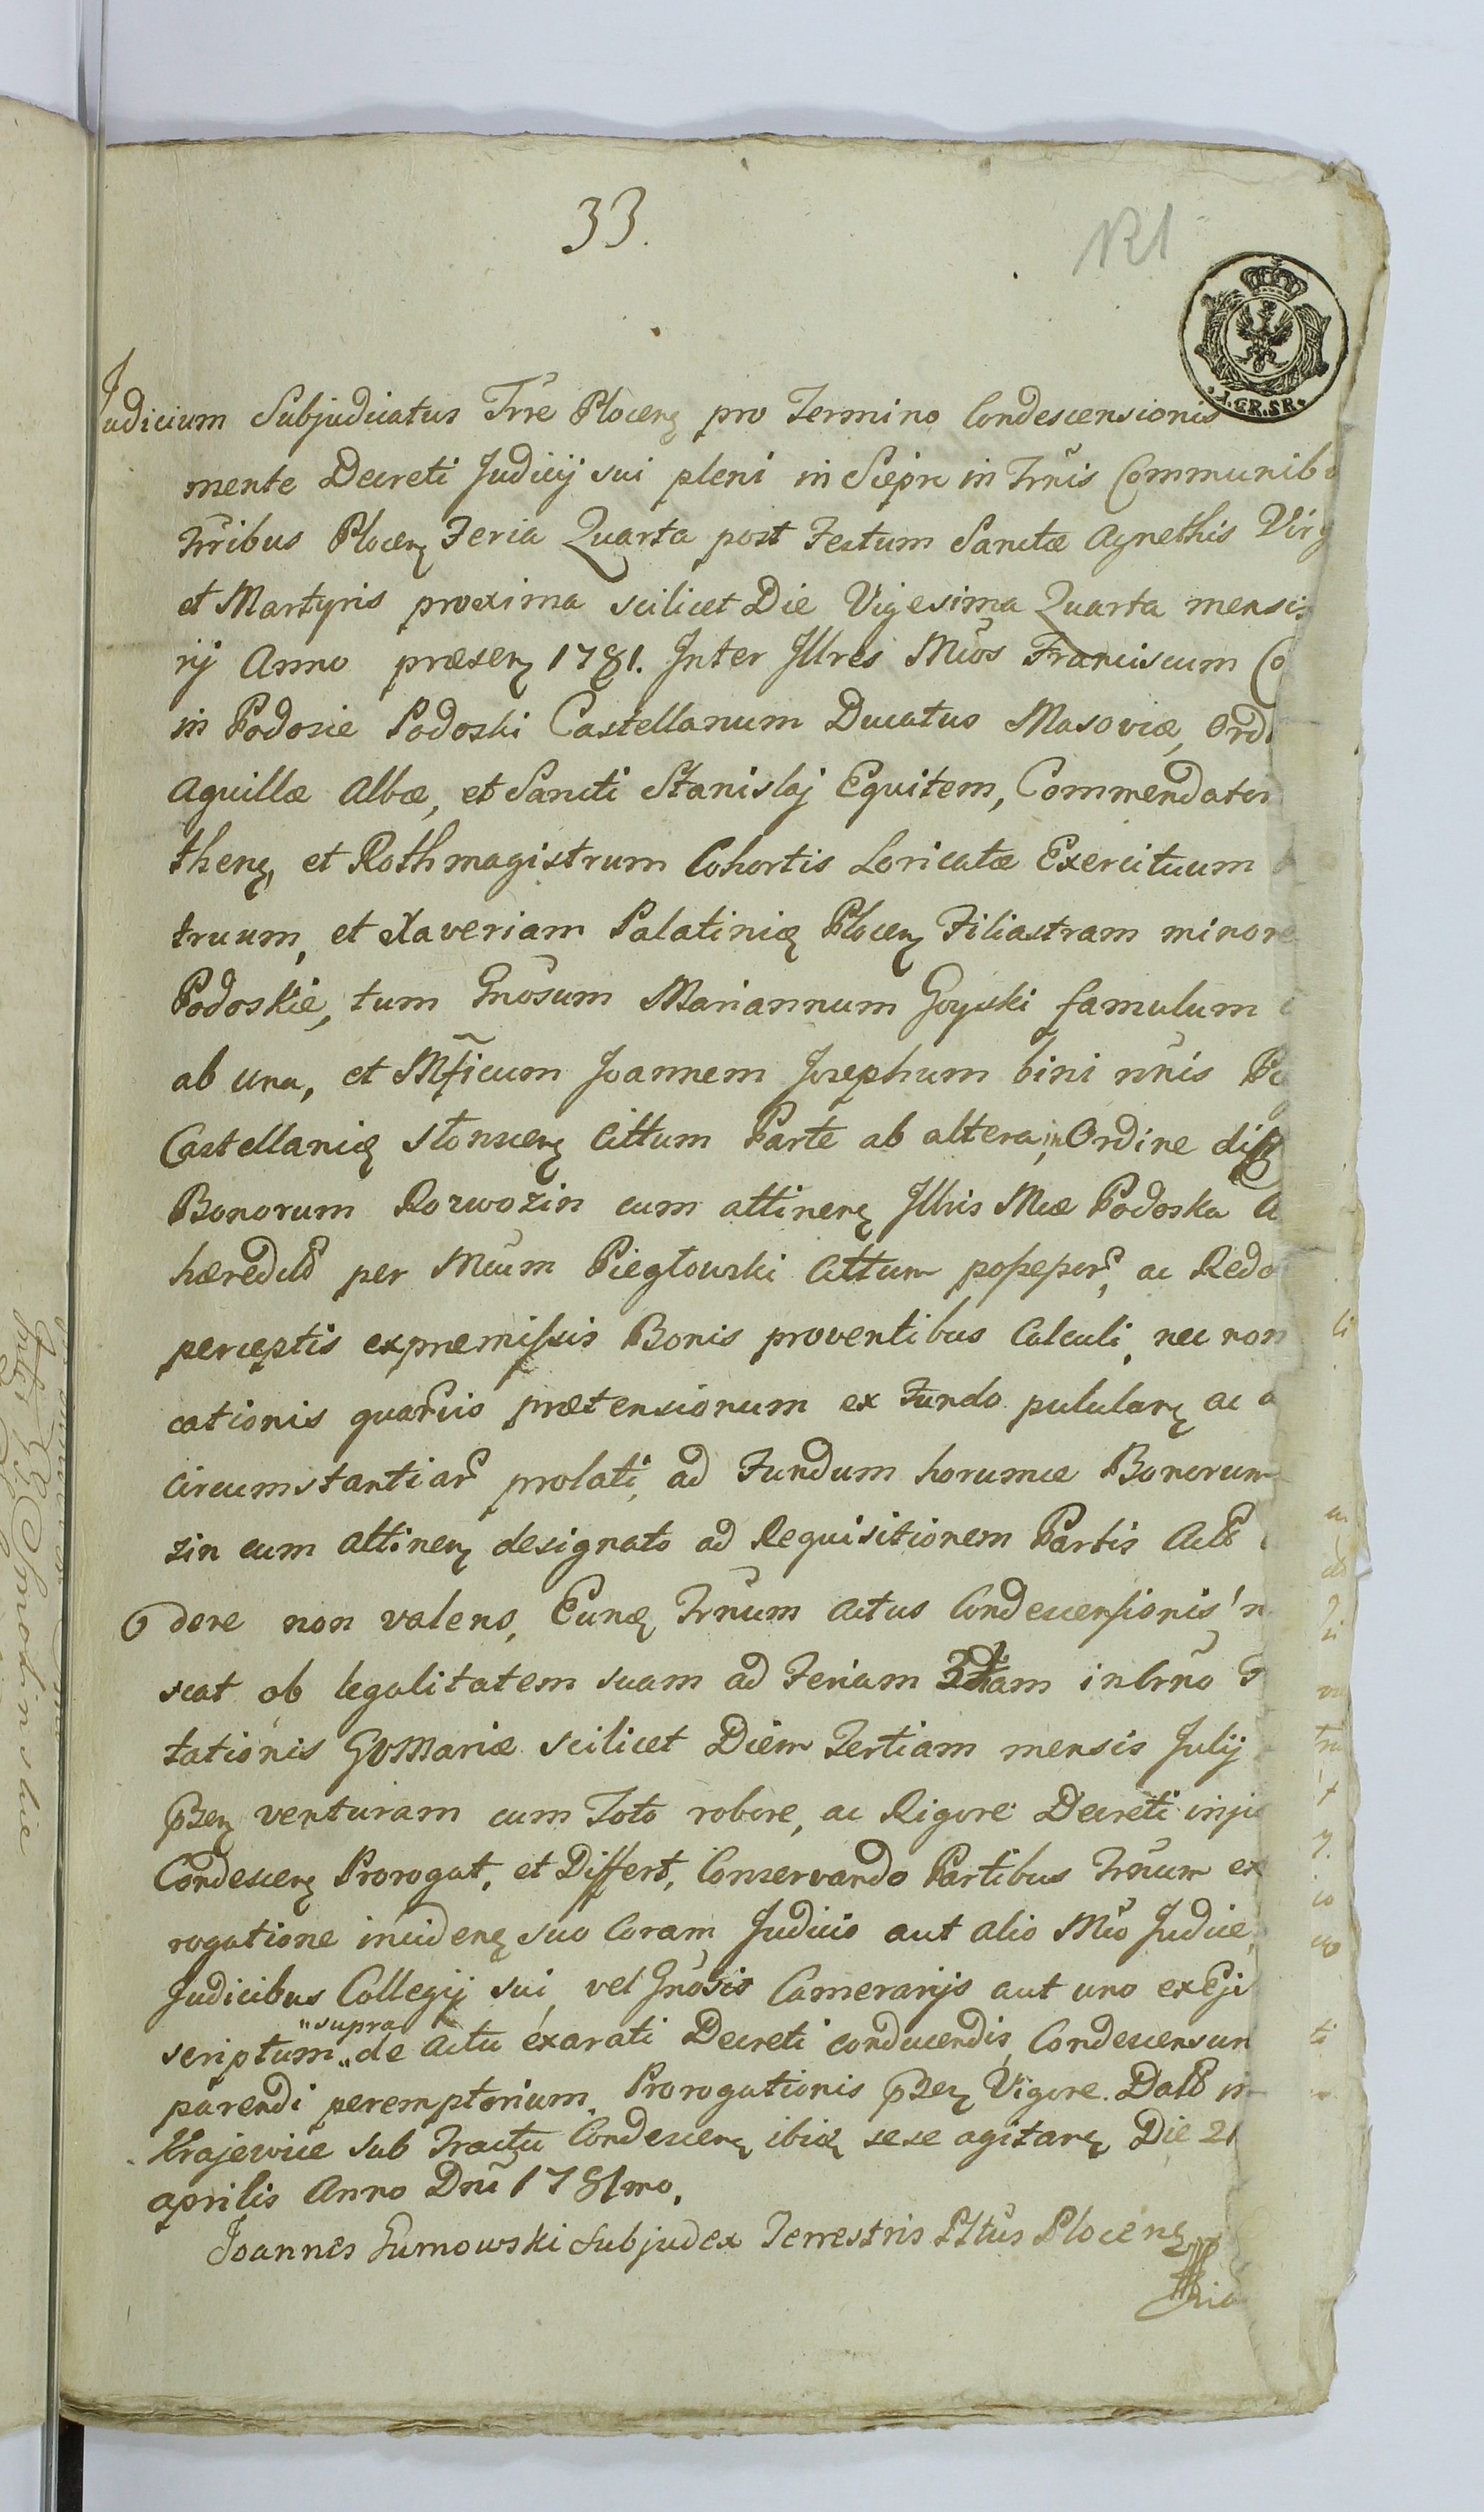 33.
121
1.GR.SR.
Judicium Subjudicatus Trre Plocen pro Termino Condescensionis
mente Decreti Judicij sui pleni in Siepr in Trnis Communib
Trribus Plocen Feria Quarta post Festum Sanctæ Agnethis Virg
et Martyris proxima scilicet Die Vigesima Quarta mensis
rij Anno præsen 1781. Inter Illres Mcos Franciscum Co
in Podosie Podoski Castellanum Ducatus Masoviæ, Ord
Aquillæ Albæ, et Sancti Stanislaj Equitem, Commendator
then, et Rothmagistrum Cohortis Loricatæ Exercituum
truum, et Xaveriam Palatinię Plocen Filiastram minore
Podoskie, tum Gnosum Mariannum Goyski famulum
ab una, et Mficum Joannem Josephum bini nnis
Castellanię słonscen Cittum Parte ab altera, in Ordine
Bonorum Rozwozin cum attinen Illris Mcæ Podoska
hæredit per Mcum Piegłowski Cittum possessor, ac Redd
perceptis expremissis Bonis proventibus Calculi, nec non
cationis quarvis prætensionum ex Fundo pululan ac
circumstantiar prolati, ad Fundum horumce Bonorum
zin cum attinen designato ad Requisitionem Partis
dere non valens, Eunq Trnum actus Condescensionis
scat ob legalitatem suam ad Feriam 3tiam incrno F
tationis GVMariæ scilicet Diem Tertiam mensis Julij
Psen venturam cum Toto robore, ac Rigore Decreti
Condescen Prorogat, et Differt, Conservando Partibus Trnum ex
rogatione inciden suo Coram Judicio aut alio Mco Judice,
Judicibus Collegij sui, vel Gnosis Camerarijs aut uno ex Eji
"supra
scriptum "de Actu exarati Decreti conducendis, Condescensur
parendi peremptorium, Prorogationis Psen Vigore. Datt in
Krajewice sub Tractu Condescen ibiq sese agitan Die 21
Aprilis Anno Dni 1781mo.
Joannes Gumowski Subjudex Terrestris Pltus Plocen